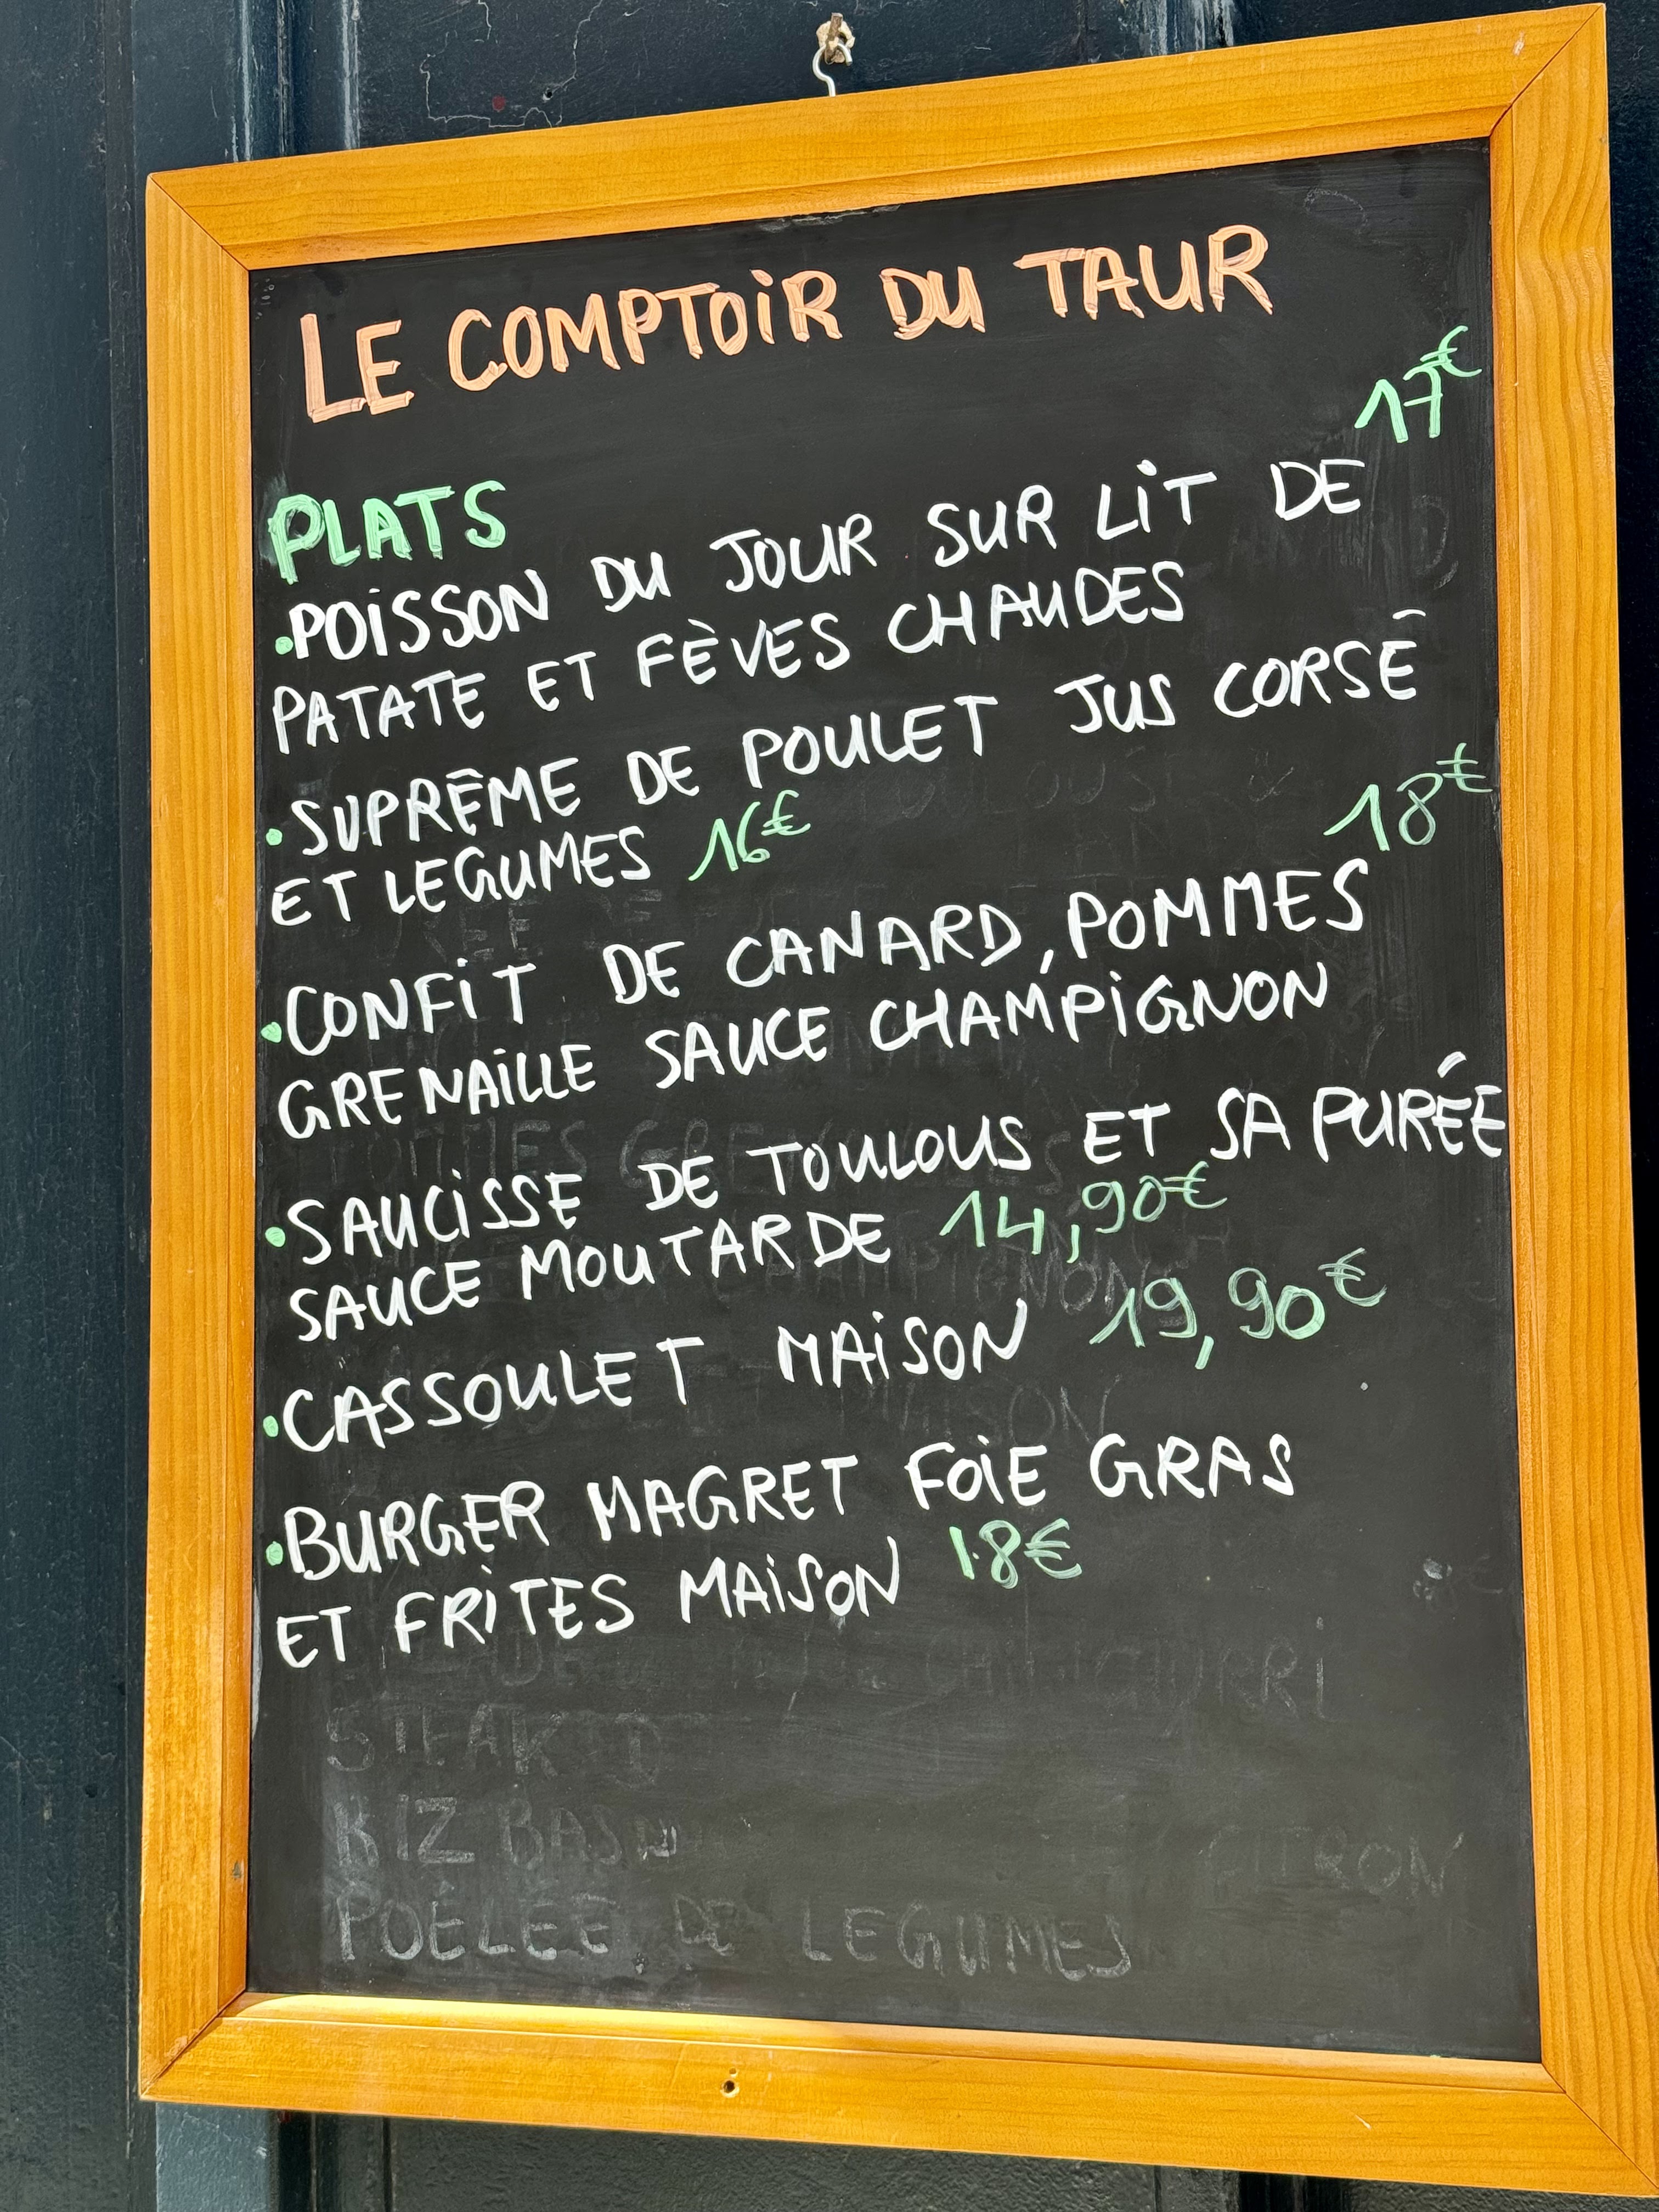 LE COMPTOiR DU TAUR
17€
PLATS
•POiSSON DU JOUR SUR LiT DE
PATATE ET FÈVES CHAUDES
•SUPRÊME DE POULET JUS CORSÉ
ET LEGUMES 16€
18€
•CONFiT DE CANARD, POMMES
GRENAiLLE SAUCE CHAMPiGNON
•SAUCiSSE DE TOULOUS ET SA PURÉE
SAUCE MOUTARDE 14,90€
•CASSOULET MAiSON 19,90€
•BURGER MAGRET FOiE GRAS
ET FRiTES MAiSON 18€
STEAK D
RIZ BASM
CITRON
POÊLÉE DE LEGUMES